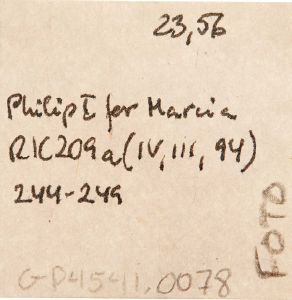 23,56
Philip I for Marcia
RIC209a(IV,III,94)
244-249
FOTO
GP4541.0078